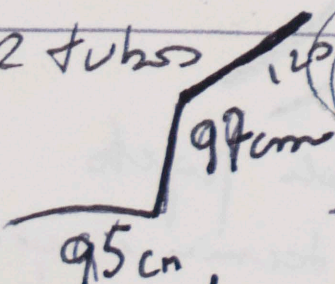 2 tubos
120
97cm
95cm